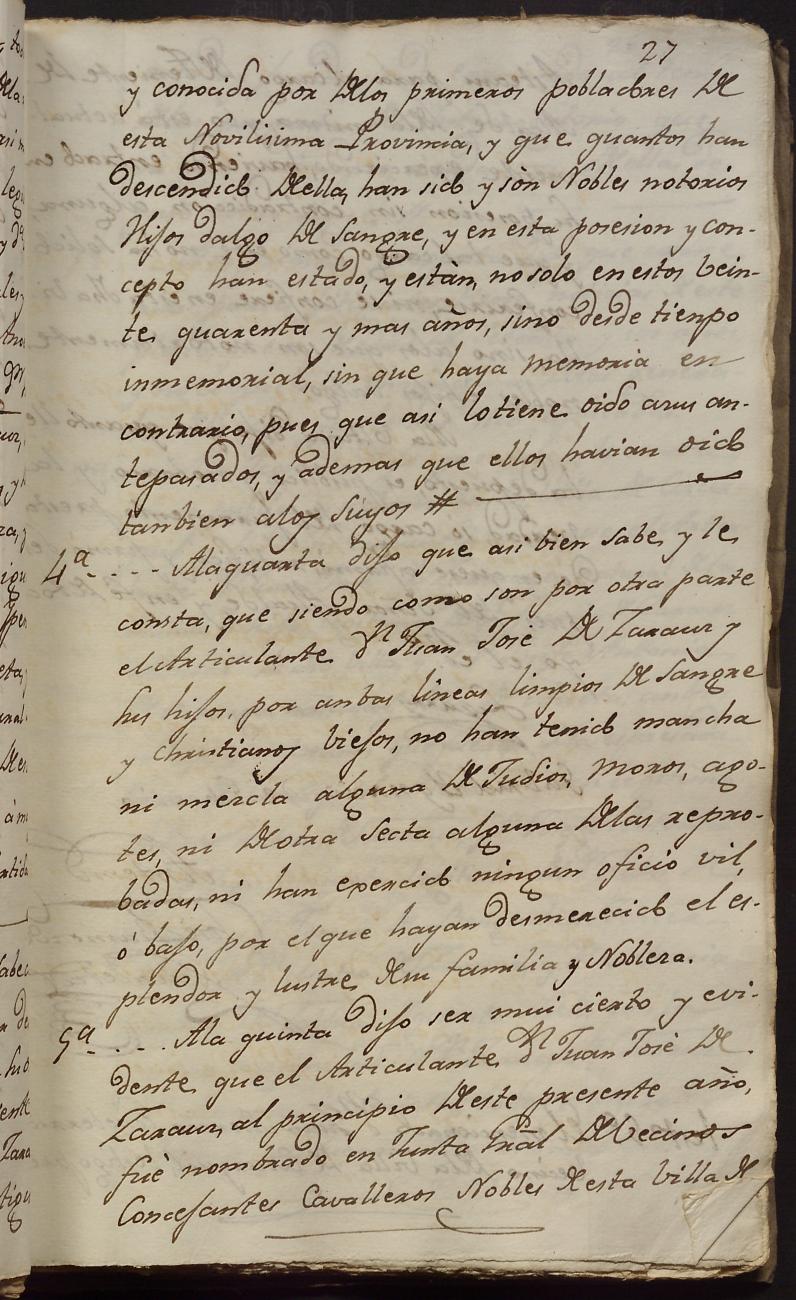 27
y conocida por Delos primeros pobladores De
esta Novilisima Provincia, y que quantos han
descendido Deella, han sido y sòn Nobles notorios
Hijos dalgo De sangre, y en esta posesion y con-
cepto han estado, y estàn, no solo en estos vein-
te, quarenta y mas años, sino desde tienpo
inmemorial, sin que haya memoria en
contrario, pues que asi lo tiene oido asus an-
tepasados, y ademas que ellos havian oido
tanbien alos suyos #
4ª. - - - Ala quarta dijo que asi bien save, y le
consta, que siendo como son por otra parte
el Articulante Dn Juan Josè De Zarauz y
sus hijos, por anbas lineas limpios De sangre
y christianos viejos, no han tenido mancha
ni mezcla alguna De Judios, moros, ago-
tes, ni De otra secta alguna Delas repro-
badas, ni han exercido ningun oficio vil,
ò bajo, por el que hayan desmerecido el es-
plendor y lustre Desu familia y Nobleza.
5ª. - - - Ala quinta dijo ser mui cierto y evi-
dente que el Articulante Dn Juan Josè De
Zarauz, al principio Deeste presente año,
fuè nombrado en Junta Gral De Vecinos
Concejantes Cavalleros Nobles Desta Villa De